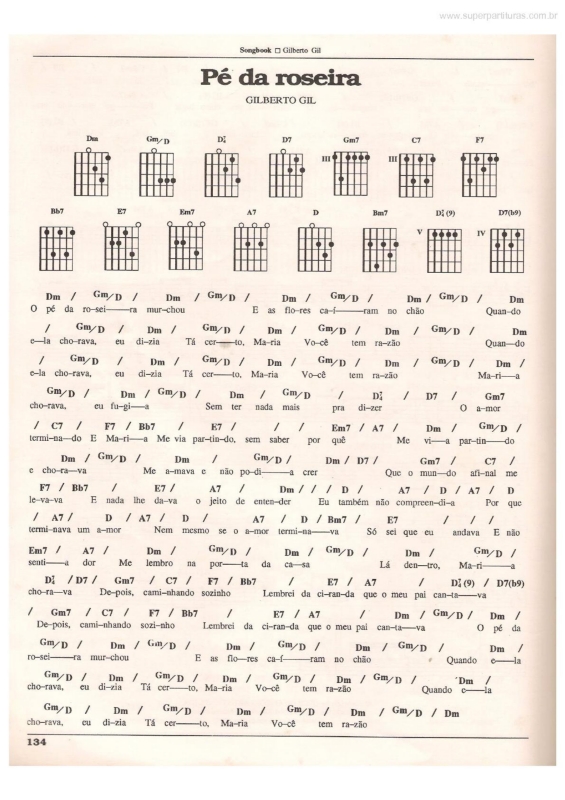 www.superpartituras.com.br
Songbook □ Gilberto Gil
Pé da roseira
GILBERTO GIL
Dm Gm/D D⁷₄ D7 Gm7 C7 F7
III III
Bb7 E7 Em7 A7 D Bm7 D⁷₄(9) D7(b9)
V IV
Dm / Gm/D / Dm / Gm/D / Dm / Gm/D / Dm / Gm/D / Dm
O pé da rosei——ra mur-chou E as flo-res ca-í——ram no chão Quan-do
/ Gm/D / Dm / Gm/D / Dm / Gm/D / Dm / Gm/D / Dm
e—la chorava, eu di-zia Tá cer——to, Ma-ria Vo-cê tem ra-zão Quan—do
/ Gm/D / Dm / Gm/D / Dm / Gm/D / Dm / Gm/D / Dm /
e-la cho-rava, eu di-zia Tá cer——to, Ma-ria Vo-cê tem ra-zão Ma-ri—a
Gm/D / Dm / Gm/D / Dm / Gm/D / D⁷₄ / D7 / Gm7
chorava, eu fu-gi—a Sem ter nada mais pra di-zer O a-mor
/ C7 / F7 / Bb7 / E7 / / / Em7 / A7 / Dm / Gm/D /
termi-na—do E Ma-ri—a Me via par-tin-do, sem saber por quê Me vi—a par-tin—do
Dm / Gm/D / Dm / Gm/D / Dm / D7 / Gm7 / C7 /
e cho-ra—va Me a-mava e não po-di——a crer Que o mun—do afi-nal me
F7 / Bb7 / E7 / A7 / Dm / / / D / A7 / D / A7 / D
le-va-va E nada lhe da-va o jeito de enten-der Eu também não compreen-di—a Por que
/ A7 / D / A7 / D / A7 / D / Bm7 / E7 / / /
termi-nava um a-mor Nem mesmo se o a-mor termi-na—va Só sei que eu andava E não
Em7 / A7 / Dm / Gm/D / Dm / Gm/D / Dm / Gm/D /
senti—a dor Me lembro na por—ta da ca-sa Lá den—tro, Ma-ri—a
D⁷₄ / D7 / Gm7 / C7 / F7 / Bb7 / E7 / A7 / D⁷₄(9) / D7(b9)
cho-ra—va De-pois, cami-nhando sozinho Lembrei da ci-ran-da que o meu pai can-ta—va
/ Gm7 / C7 / F7 / Bb7 / E7 / A7 / Dm / Gm/D / Dm
De-pois, cami-nhando sozi-nho Lembrei da ci-randa que o meu pai can-ta—va O pé da
Gm/D / Dm / Gm/D / Dm / Gm/D / Dm / Gm/D / Dm /
ro-sei——ra mur-chou E as flo—res ca-í——ram no chão Quando e——la
Gm/D / Dm / Gm/D / Dm / Gm/D / Dm / Gm/D / Dm /
cho-rava, eu di-zia Tá cer——to, Ma-ria Vo-cê tem ra-zão Quando e—la
Gm/D / Dm / Gm/D / Dm / Gm/D / Dm / Gm/D / Dm
cho-rava, eu di-zia Tá cer——to, Ma-ria Vo-cê tem ra-zão
134